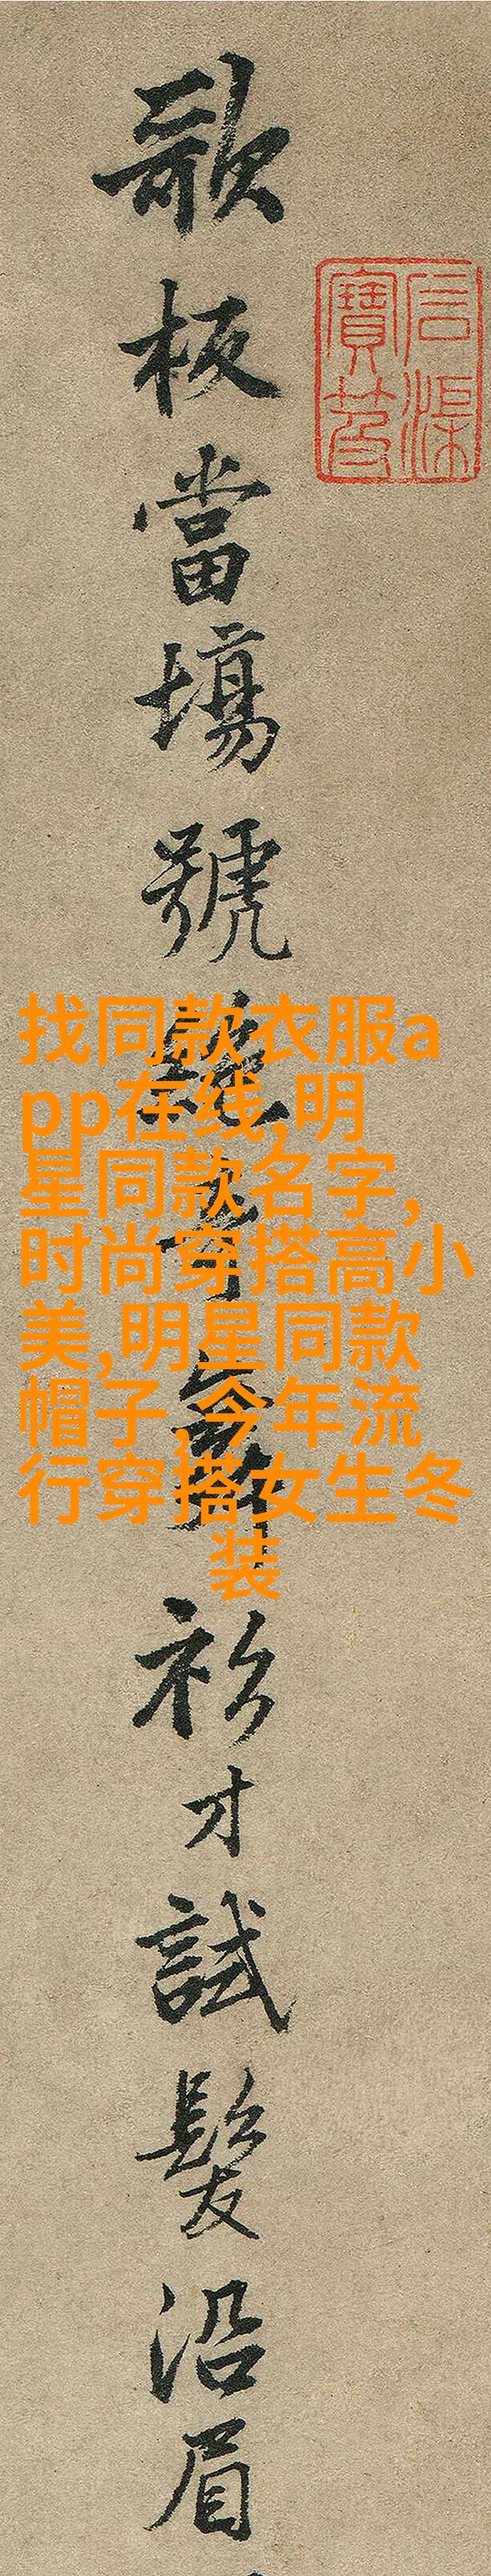 石渠
寶笈
歌板當塲號絕奇舞衫才試髮沿眉
找同款衣服a
pp在线,明
星同款名字,
时尚穿搭高小
美,明星同款
帽子,今年流
行穿搭女生冬
装